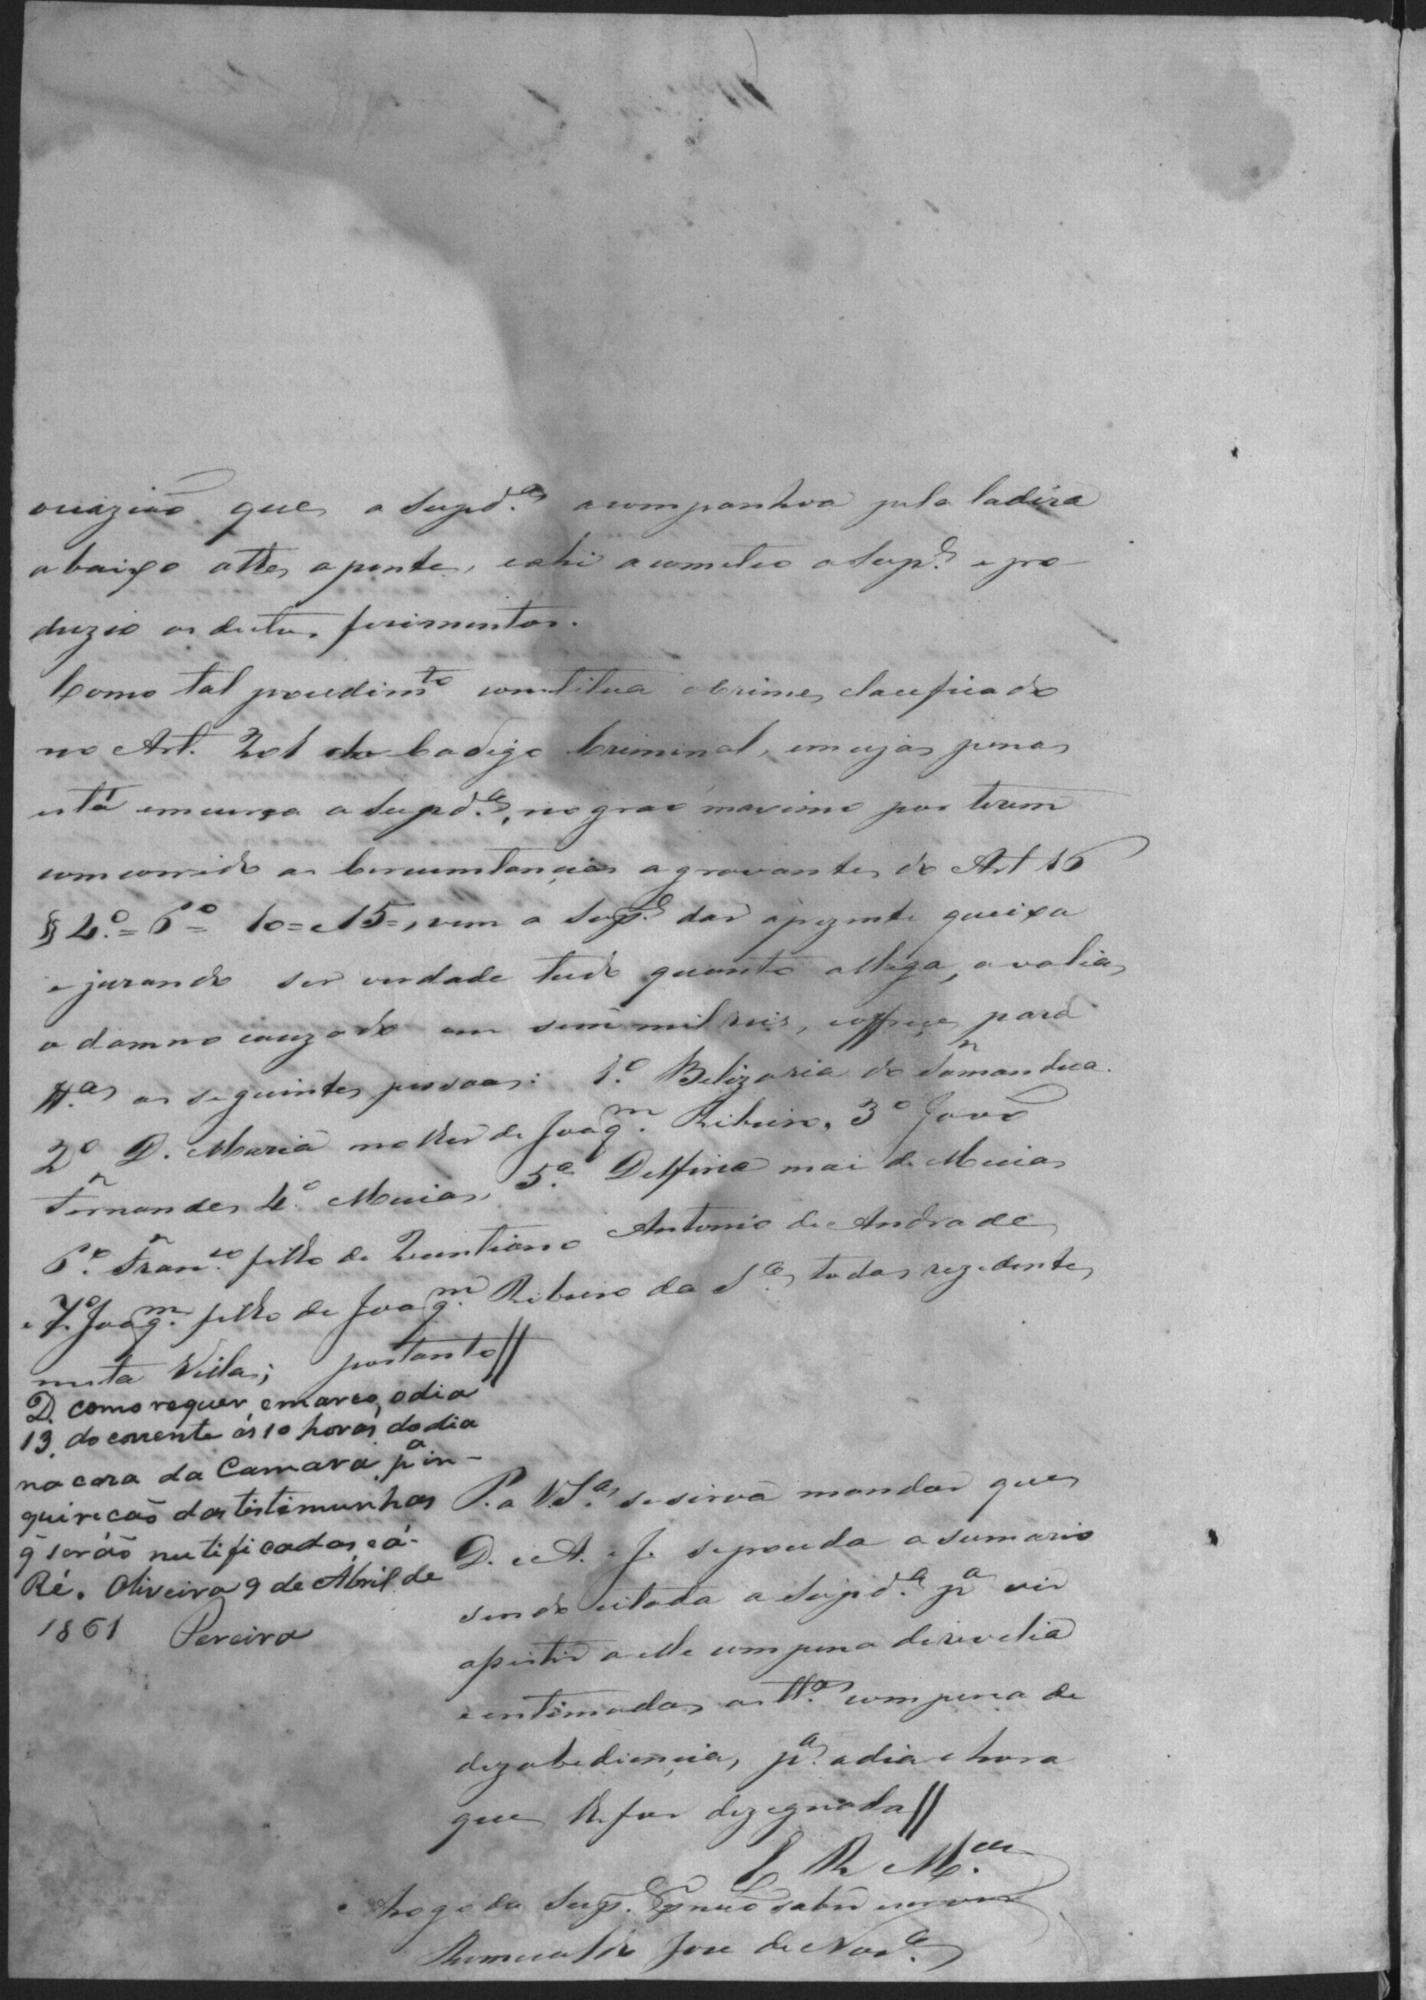 ocazião que a Supd.ª acompanhva pela ladeira
abaixo athe a ponte, e ahi acometeo a Sup.e e pro-
duzio os ditos ferimentos.
Como tal procedim.to constitua o crime, clacificado
no Art. 201 do Codigo Criminal, em cujas penas
está emcursa a Supd.ª, no grao maximo por terem
comcorrido as Circumstancias agravantes do Art 16
§ 4.º = 6º = 10 = e 15 =, vem a Sup.e dar a prezente queixa
e jurando ser verdade tudo quanto allega, avalia
o damno cauzado em sem mil reis, e offrece para
tt.as as seguintes pessoas: 1.º Belizaria de Tamandua.
2º D. Maria molher de Joaq.m Ribeiro, 3º João
Fernandes 4.º Mecias, 5.ª Delfina mai de Mecias
6.º Fran.co filho de Quintiano Antonio de Andrade,
e 7.º Joaq.m filho de Joaq.m Ribeiro da S.ª, todas rezidentes
nesta Villa; portanto //
D. como requer, e marco, o dia
13 do corrente ás 10 horas do dia
na caza da Camara p.a in-
quirecão das testemunhas
q̃ serão nutificadas, e á
Ré. Oliveira 9 de Abril de
1861 Pereira
P. a V.S.ª se sirva mandar que
D. e A. e J. se proceda a sumario
sendo citada a Supd.ª p.ª vir
asestir a elle com pena de revelia
e entimadas as tt.as com pena de
dezobediencia, p.ª o dia e hora
que lhe for dezegnada //
E R M.ce
A rogo da Sup.e por não saber escrever
Romualdo Jose de